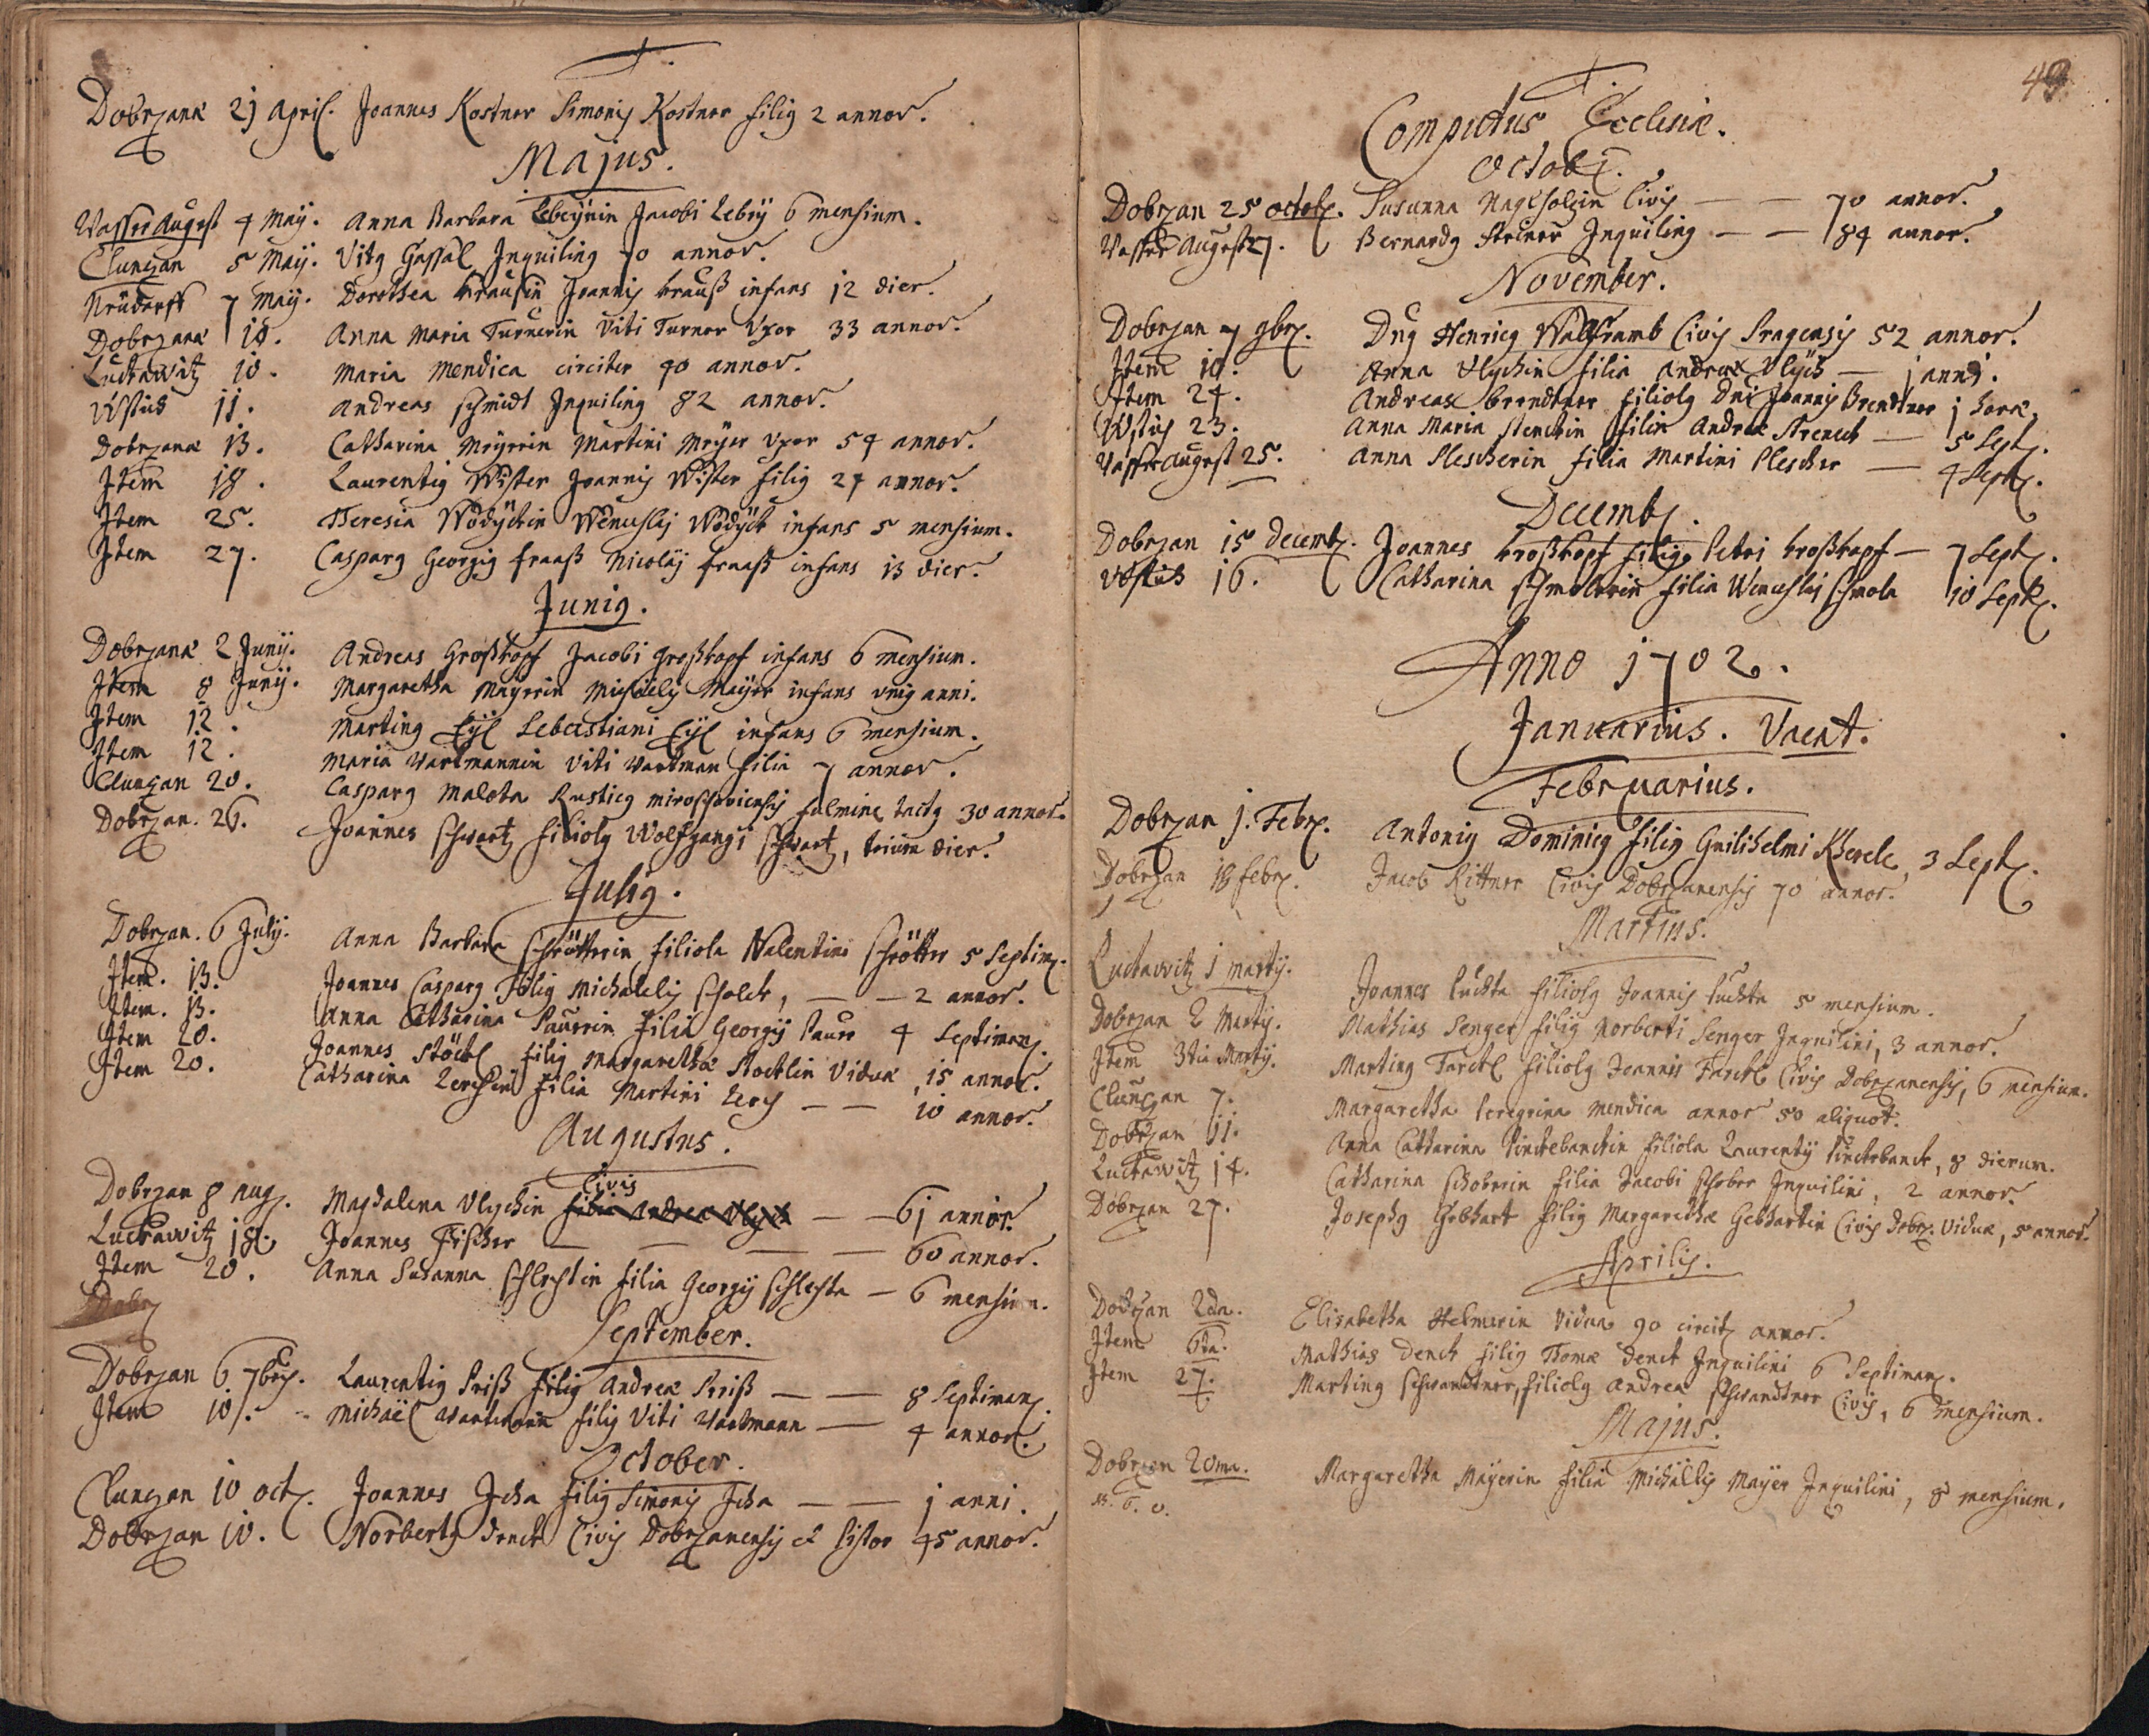 Dobrzanæ 21 April. Joannes Kostner Simonis Kostner filig 2 annor.
Majus.
Wasser Augest 4 Maij. Anna Barbara Lebeÿnin Jacobi Lebeÿ 6 mensium.
Clunzan 5 Maij. Vitg Gassal Inquiling 70 annor.
Neüdorff 7 Maij. Dorothea Krausin Joannis Krauß infans 12 dier.
Dobrzanæ 10. Anna Maria Turnerin Viti Turner Uxor 33 annor.
Luckawitz 10. Maria Mendica circiter 90 annor.
Wstüs 11. Andreas Schmidt Inquiling 82 annor.
Dobrzanæ 13. Catharina Meÿerin Martini Meÿer Uxor 54 annor.
Item 18. Laurentig Wister Joannis Wister filig 27 annor.
Item 25. Theresia Wodÿckin Wenceslaj Wodÿck infans 5 mensium.
Item 27. Casparg Georgig fraaß Nicolaÿ fraaß infans 13 dier.
Junig.
Dobrzanæ 2 Junij. Andreas Großkopf Jacobi Großkopf infans 6 mensium.
Item 8 Junij. Margaretha Maÿerin Michaëlis Maÿer infans unig anni.
Item 12. Marting Eÿl Sebastiani Eÿl infans 6 mensium.
Item 12. Maria Wartmannin Viti Wartman filia 7 annor.
Clunzan 20. Casparg Malota Rusticg fulmine tactg 30 annor.
Dobrzan. 26. Joannes Schwartz filiolg Wolfgangi Schwartz, trium dier.
Julig.
Dobrzan. 6 Julij. Anna Barbara Schrötterin filiola Valentini Schrötter 5 Septim.
Item. 13. Joannes Casparg filig Michaelis Scholck, — — 2 annor.
Item. 13. Anna Catharina Paurin filia Georgij Paur 4 Septiman.
Item 20. Joannes Stöckl filig Margarethæ Stocklin Viduæ, 15 annor.
Item 20. Catharina Lerchin filia Martini Lerch — — 10 annor.
Augustus.
Dobrzan 8 Aug. Magdalena Ulÿchin Civis filia Andreæ Ulÿch — — 61 annor.
Luckawitz 18. Joannes Fischer — — — — 60 annor.
Item 20. Anna Susanna Schlechtin filia Georgij Schlechta — 6 mensium.
Dobrz
September.
Dobrzan 6 7bris. Laurentig Priß filig Andreæ Priß — — 8 Septiman.
Item 10. Michaël filig Viti Wartmann — 4 annor.
October.
Clunzan 10 oct. Joannes Icha filig Simonis Icha — — 1 anni.
Dobrzan 10. Norbertg Denck Civis Dobrzanensis et Pistor 45 annor.
49
Computus Ecclesiæ.
Octobr.
Dobrzan 25 octob. Susanna Civis — — 70 annor.
Wasser August 27. Bernardg Steiner Inquiling — — 84 annor.
November.
Dobrzan 7 9br. Dng Henricg Wolfframb Civis Pragensis 52 annor.
Item 10. Anna Ulychin filia Andreæ Ulÿch — 1 anni.
Item 24. Andreas Brendtner filiolg Dni Joannis Brendtner 1 horæ.
Wstüs 23. Anna Maria Stenckin filia Andreæ — 5 Sept.
Wasser August 25. Anna Plescherin filia Martini Plescher — 4 Sept.
Decemb.
Dobrzan 15 Decemb. Joannes Kroßkopf filig Petri Kroßkopf — 7 Sept.
Wstüs 16. Catharina filia Wenceslaj Schmola 10 Sept.
Anno 1702.
Januarius. Vacat.
Februarius.
Dobrzan 1. Febr. Antonig Dominicg filig Guilihelmi Kherele, 3 Sept.
Dobrzan 18 febr. Jacob Rittner Civis Dobrzanensis 70 annor.
Martius.
Luckawitz 1 Martij. Joannes Puchta filiolg Joannis Puchta 5 mensium.
Dobrzan 2 Martij. Mathias Senger filig Norberti Senger Inquilini, 3 annor.
Item 3tia Martij. Marting Farckl filiolg Joannis Farckl Civis Dobrzanensis, 6 mensium.
Clunzan 7. Margaretha Peregrina mendica annor 50 aliquot.
Dobrzan 11. Anna Catharina Finckebanckin filiola Laurentij Finckebanck, 8 dierum.
Luckawitz 14. Catharina Schoberin filia Jacobi Schober Inquilini, 2 annor.
Dobrzan 27. Josephg Gebhart filig Margarethæ Gebhartin Civis Dobrz: Viduæ, 5 annor.
Aprilis.
Dobrzan 2da. Elisabetha Helmerin Vidua 90 circit annor.
Item 6ta. Mathias Denck filig Thomæ Denck Inquilini 6 Septiman.
Item 27. Marting Schwandtner, filiolg Andreæ Schwandtner Civis, 6 mensium.
Majus.
Dobrzan 20ma. Margaretha Maÿerin filia Michaëlis Maÿer Inquilini, 8 mensium.